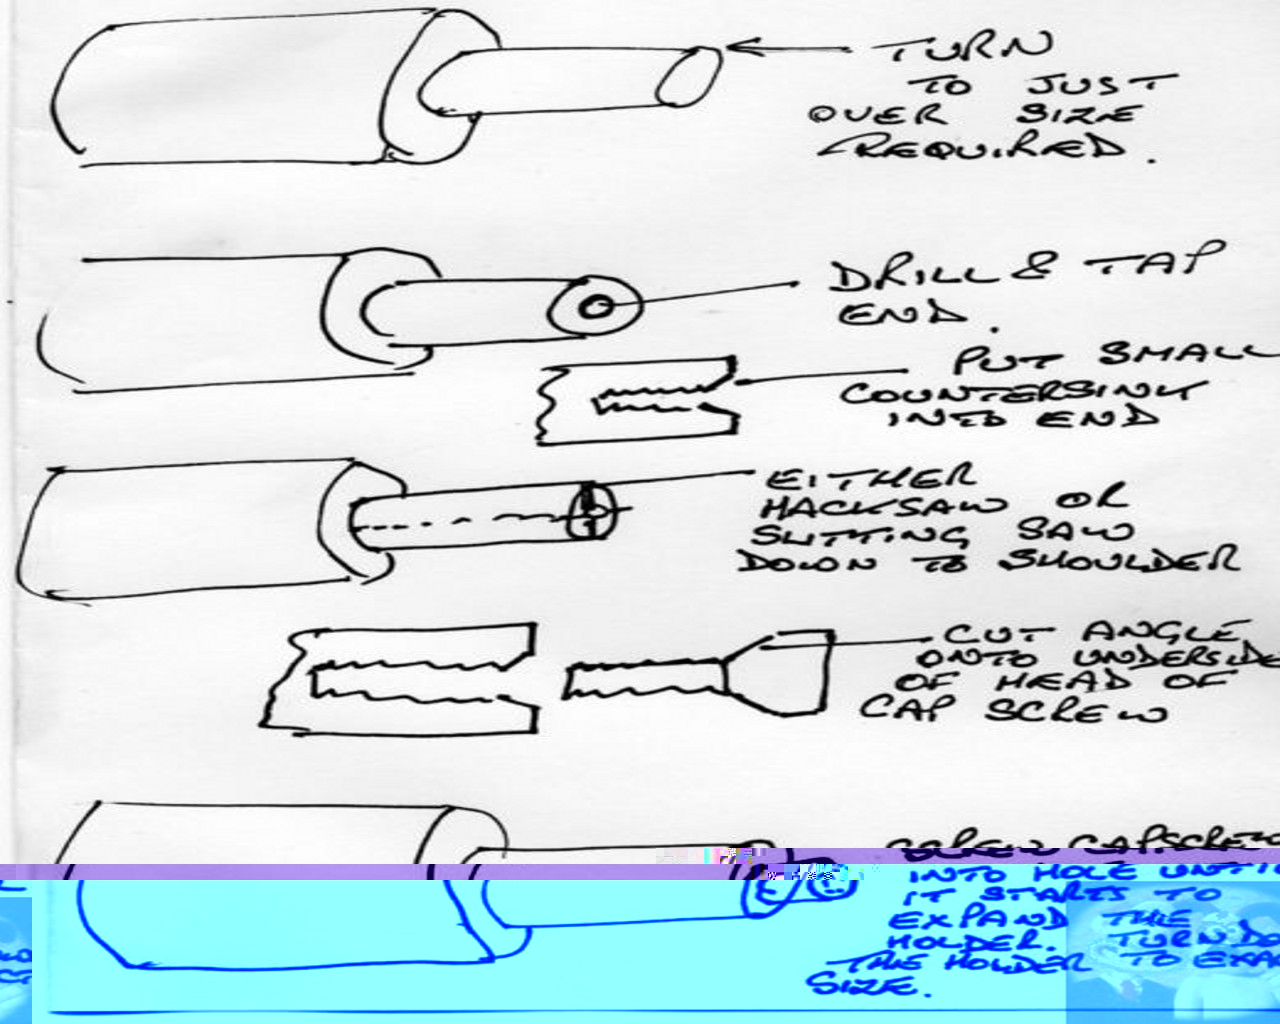 TURN
TO JUST
OVER SIZE
REQUIRED.
DRILL & TAP
END.
PUT SMALL
COUNTERSINK
INTO END
EITHER
HACKSAW OR
SLITTING SAW
DOWN TO SHOULDER
CUT ANGLE
ONTO UNDERSIDE
OF HEAD OF
CAP SCREW
SCREW CAPSCREW
INTO HOLE UNTIL
IT STARTS TO
EXPAND THE
HOLDER. TURN DO
THE HOLDER TO EXA
SIZE.